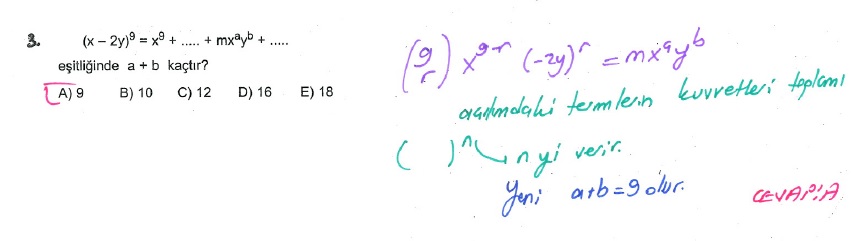 3. (x – 2y)⁹ = x⁹ + ..... + mxᵃyᵇ + .....
eşitliğinde a + b kaçtır?
A) 9 B) 10 C) 12 D) 16 E) 18
(9 r) x⁹⁻ʳ (-2y)ʳ = mxᵃyᵇ
açılımdaki terimlerin kuvvetleri toplamı
( )ⁿ n yi verir.
Yani a+b=9 olur.
CEVAP:A